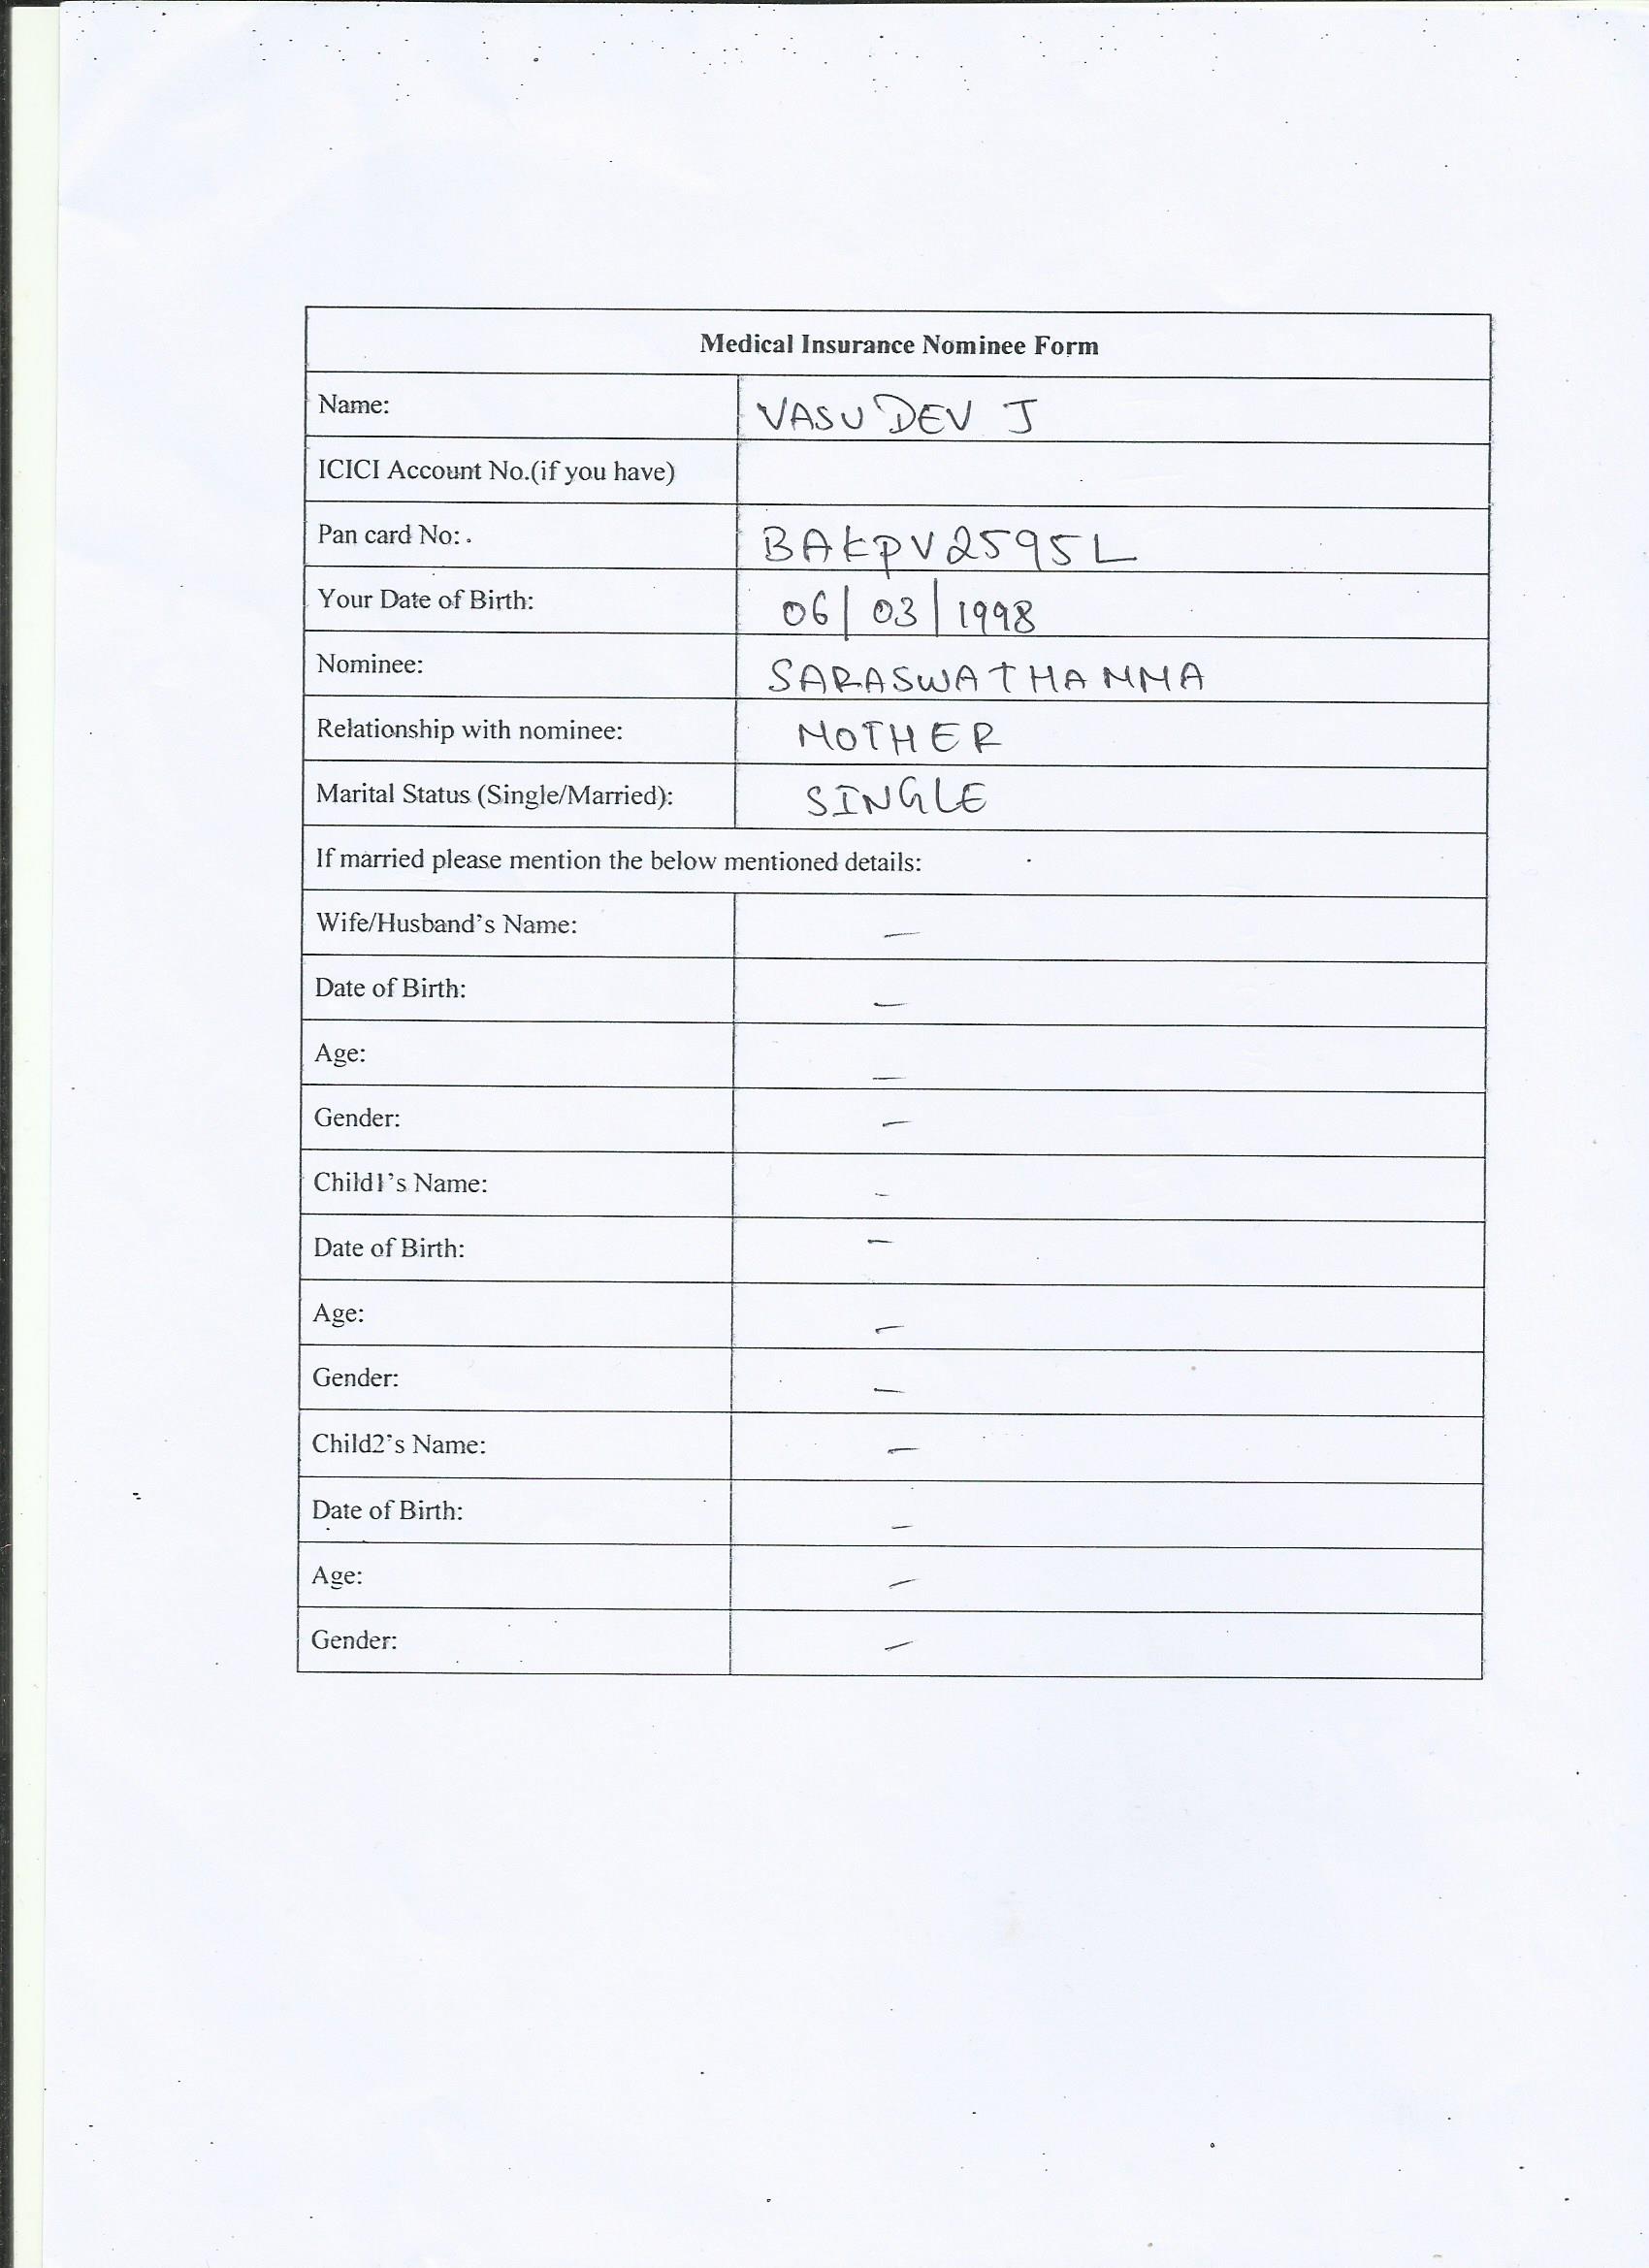 Medical Insurance Nominee Form
Name: VASUDEV J
ICICI Account No.(if you have)
Pan card No: BAKPV2595L
Your Date of Birth: 06/03/1998
Nominee: SARASWATHAMMA
Relationship with nominee: MOTHER
Marital Status (Single/Married): SINGLE
If married please mention the below mentioned details:
Wife/Husband's Name: –
Date of Birth: –
Age: –
Gender: –
Child1's Name: –
Date of Birth: –
Age: –
Gender: –
Child2's Name: –
Date of Birth: –
Age: –
Gender: –